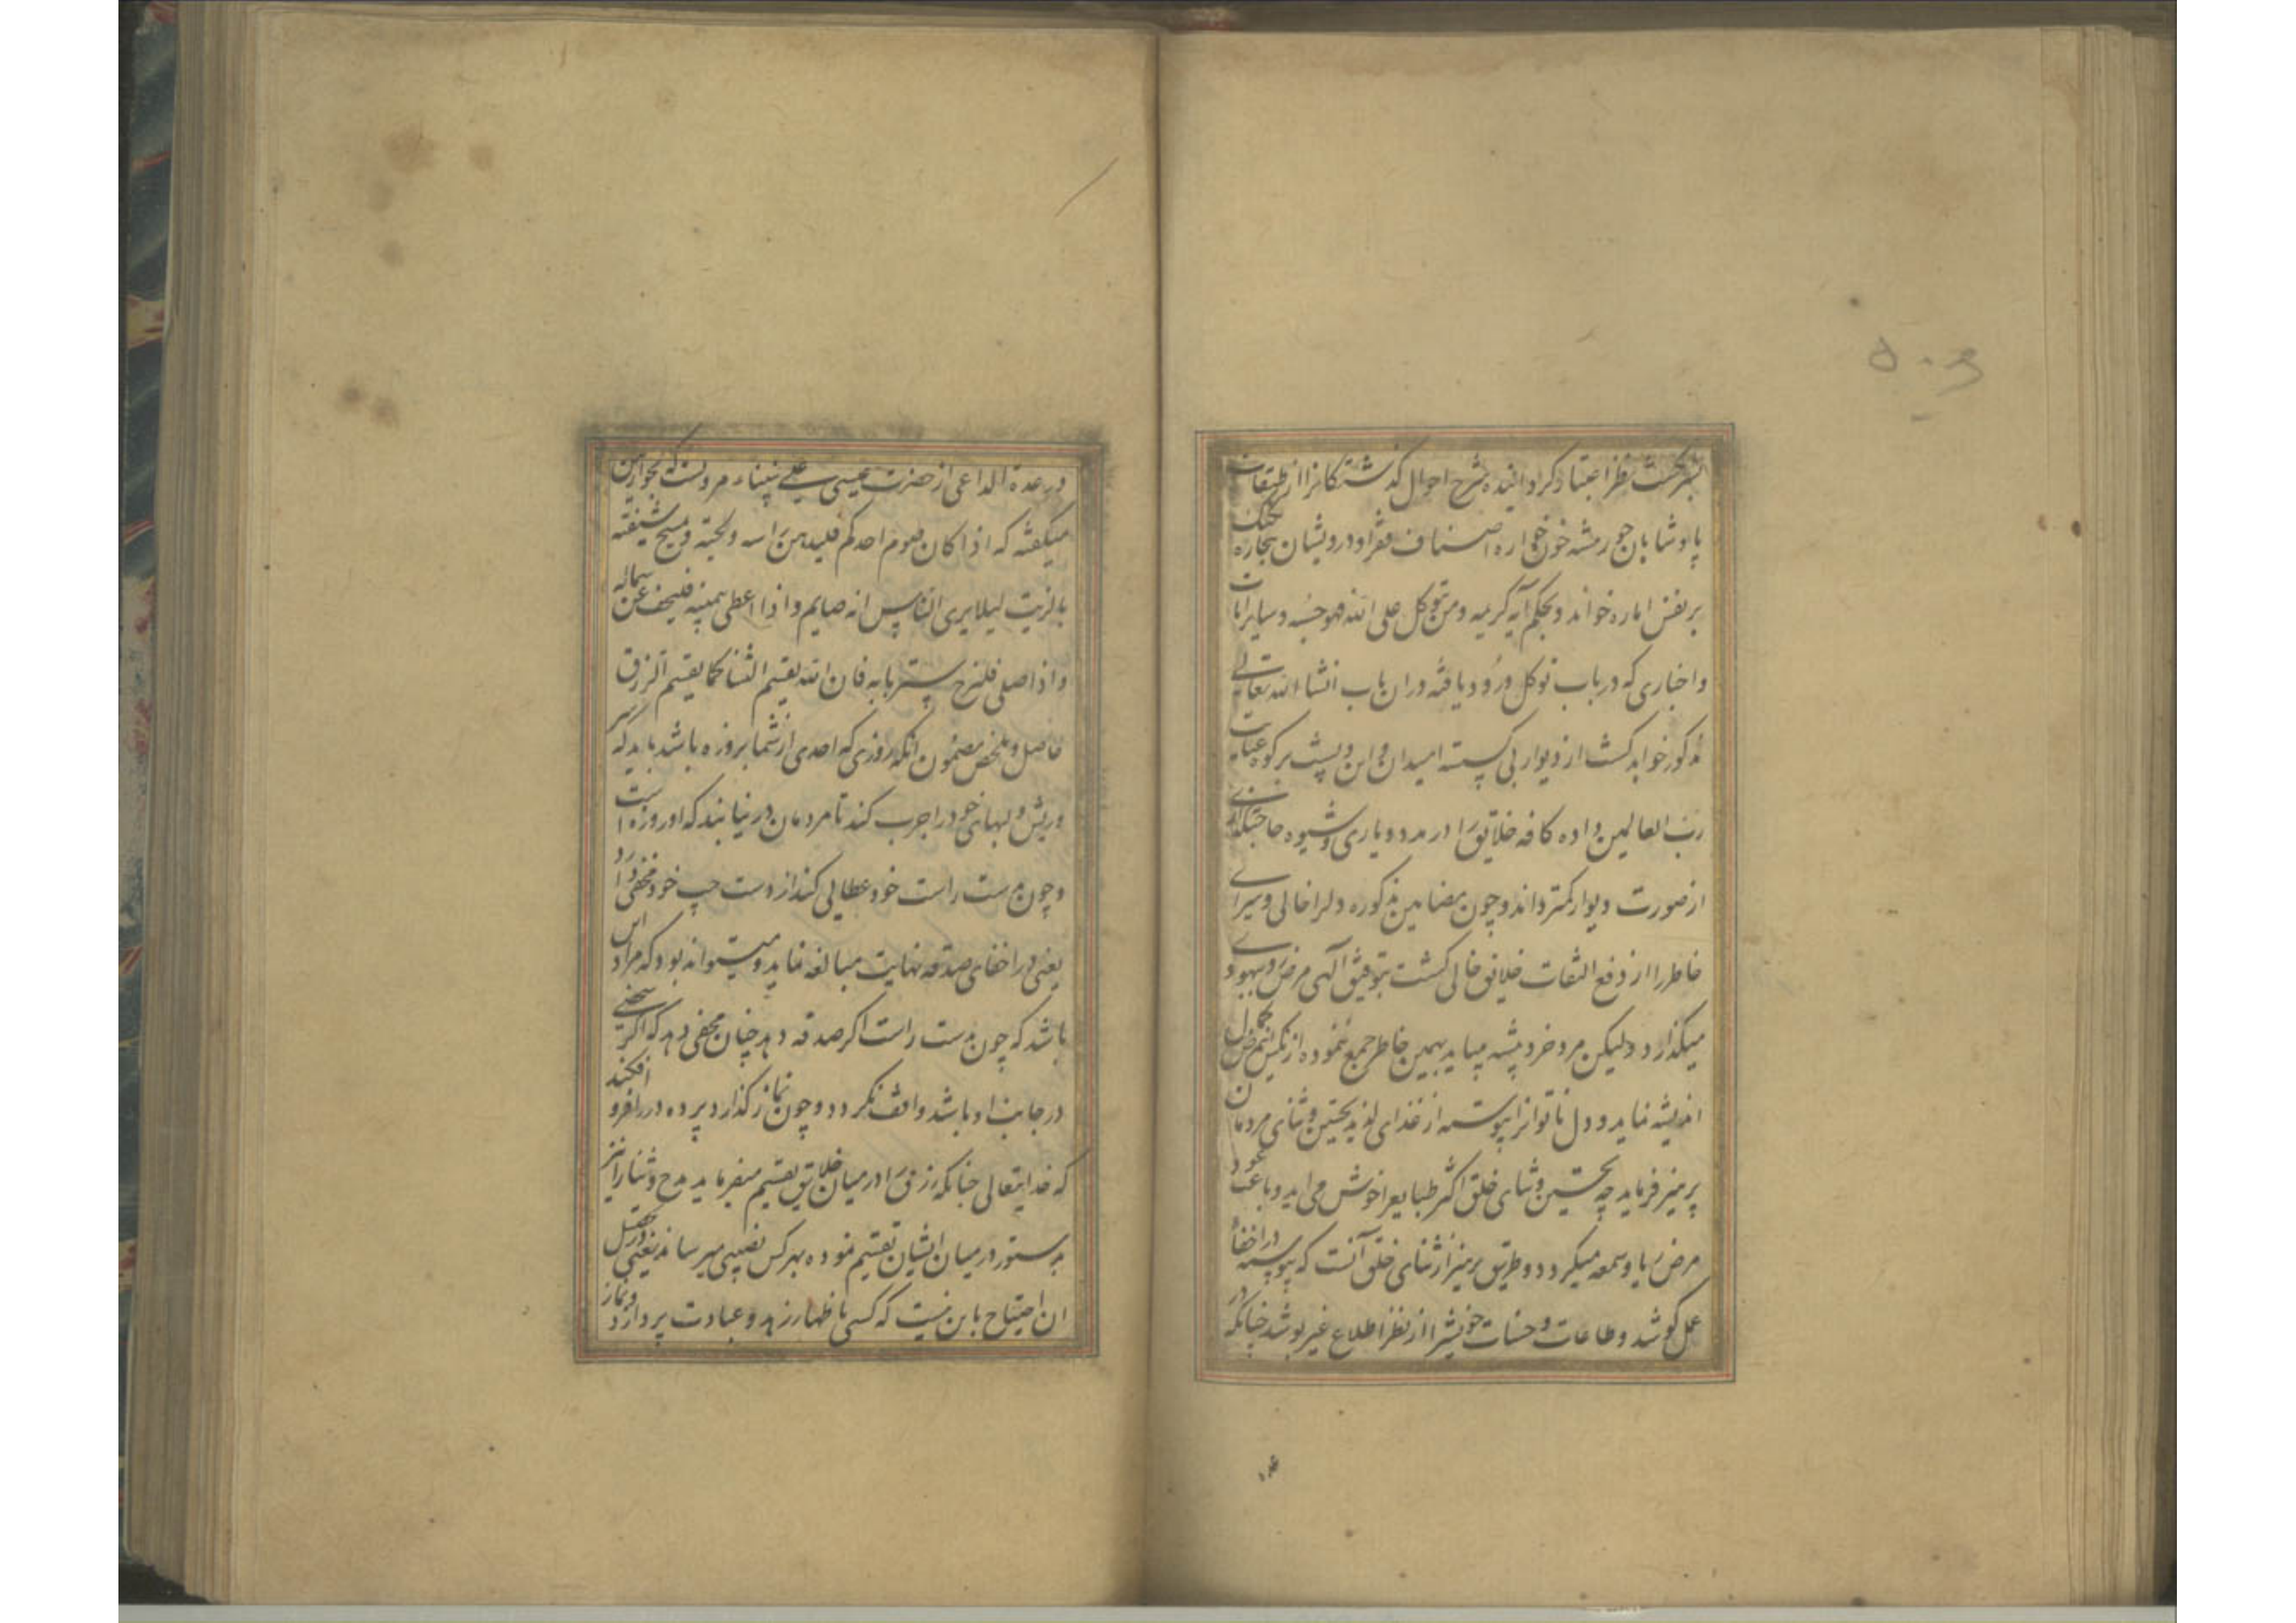 ۵۰۳
بسرانگشت نظر اعتبار گردانیده شرح احوال گذشتگانرا از طبقات
پادشاهان جور پیشه خون خواره اصناف فقرا و درویشان بیچاره
بر نفس اماره خواند و بحکم آیه کریمه ومن یتوکل علی الله فهو حسبه و سایر ایات
و اخباری که در باب توکل ورود یافته در ان باب انشاالله تعالی
مذکور خواهد کشت از دیوار کسسته امید ان و این و پشت بر کوه عنایت
رب العالمین داده کافه خلایق را در مدد ویاری و شیوه حاجتگذاری
از صورت دیوار کمتر داند و چون بمضامین مذکوره دلرا خالی و سرای
خاطر را از دفع التفات خلایق خالی کشت بتوفیق آلهی مرض رو ببهبودی
میگذارد ولیکن مرد خرد پیشه میباید بهمین خاطر جمع ننموده از نکس
اندیشه نماید و دل ناتوانرا پیوسته از غذای لذیذ تحسین و ثنای مردمان
پرهیز فرماید چه تحسین و ثنای خلق اکثر طبایع را خوش می اید و باعث عود
مرض ریا و سمعه میکردد و طریق پرهیز از ثنای خلق آنست که پیوسته در اخفاء
عمل کوشد و طاعات و حسنات خویشرا از نظر اطلاع غیر پوشد چنانکه در
در عدة الداعی از حضرت عیسی علی نبینا مرویست که بحوارین
میکفته که اذا کان صوم احدکم فلیدهن راسه و لحیته و یمسح شفتیه
بالزیت لیلا یری الناس انه صایم و اذا اعطی بیمینه فلیخف عن شماله
و اذا صلی فلیرخ ستر بابه فان الله یقسم الثناء کما یقسم الرزق
حاصل و ملخص مضمون انکه روزی که احدی از شما بروزه باشد باید که سر
و ریش و لبهای خود را چرب کند تا مردمان در نیابند که او روزه است
و چون بدست راست خود عطایی کند از دست چپ خود مخفی دارد
یعنی در اخفای صدقه نهایت مبالغه نماید و میتواند بود که مراد این
باشد که چون بدست راست اکر صدقه دهد چنان مخفی دهد که اکر شخصی
در جانب او باشد واقف نکردد و چون نماز گذارد پرده در را فرو افکند
که خدایتعالی چنانکه رزق را در میان خلایق تقسیم میفرماید مدح و ثنا را نیز
بدستور در میان ایشان تقسیم نموده بهر کس نصیبی میرساند یعنی در تحصیل
ان احتیاج باین نیست که کسی باظهار زهد و عبادت پردازد و نماز